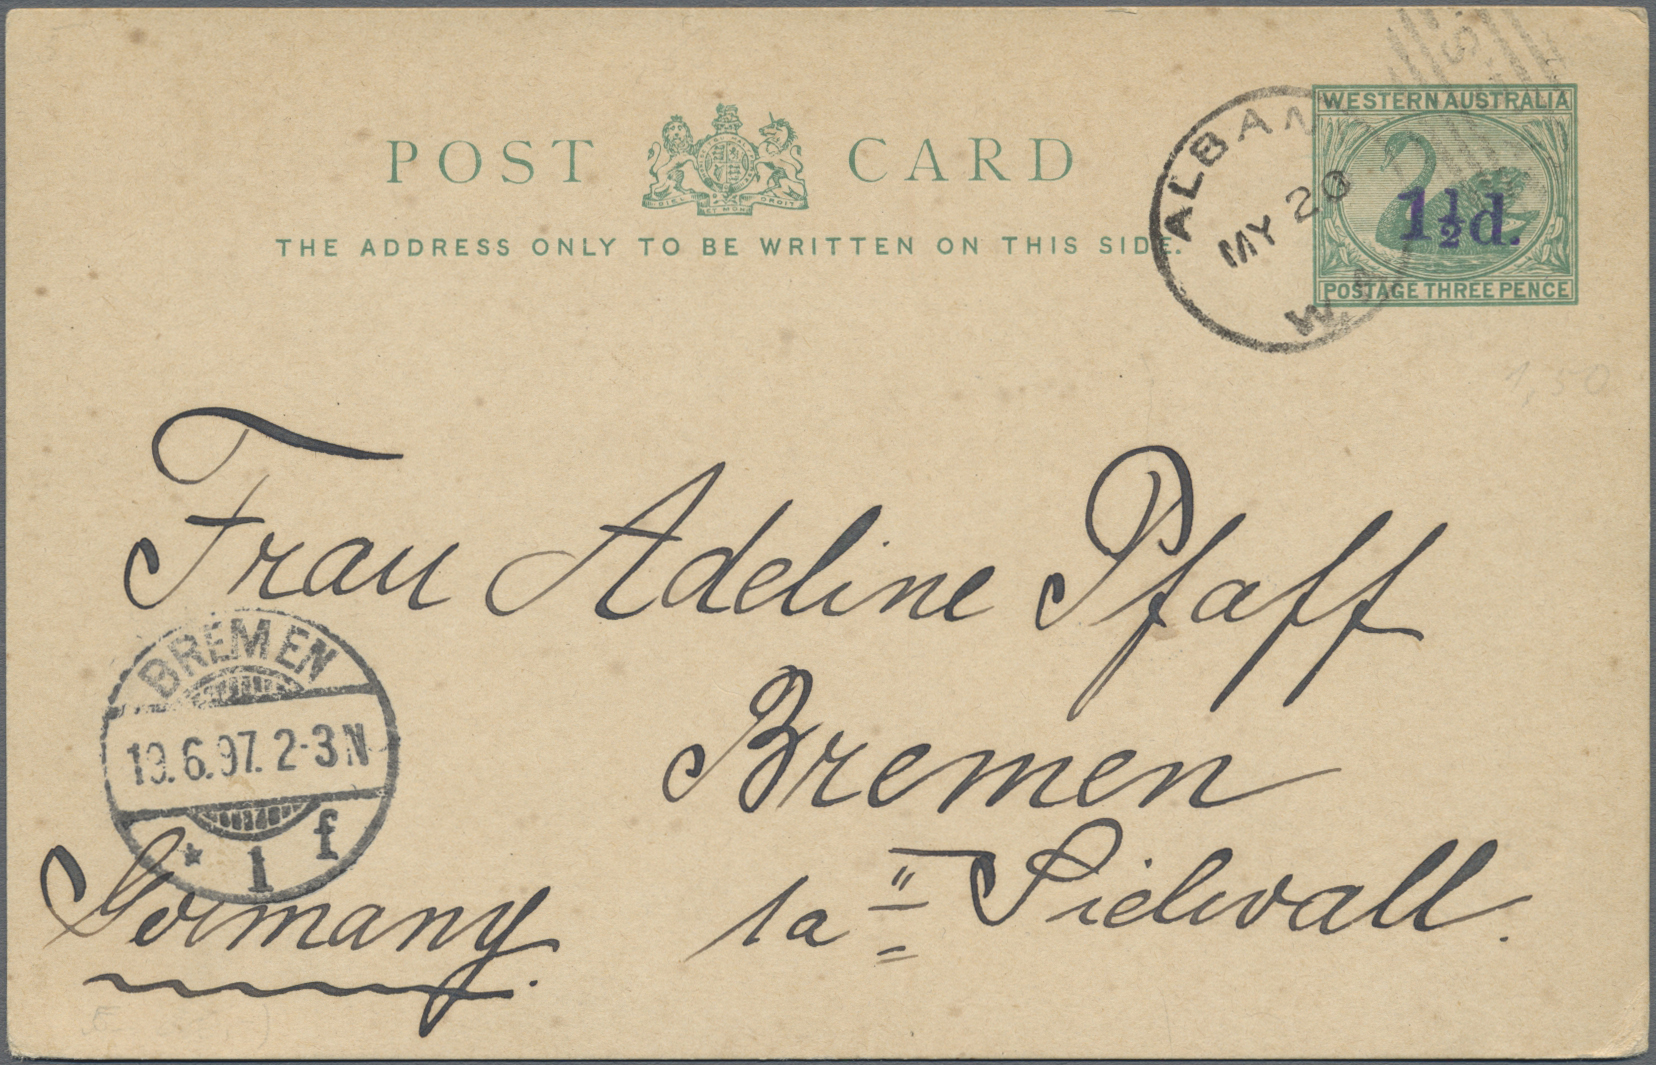 POST CARD
DIEU ET MON DROIT
THE ADDRESS ONLY TO BE WRITTEN ON THIS SIDE.
WESTERN AUSTRALIA
1½d.
POSTAGE THREE PENCE
ALBANY
MY 20
W.A.
1,50
Frau Adeline Pfaff
Bremen
1a Sielwall.
Germany.
BREMEN
19.6.97. 2-3N
* 1 f